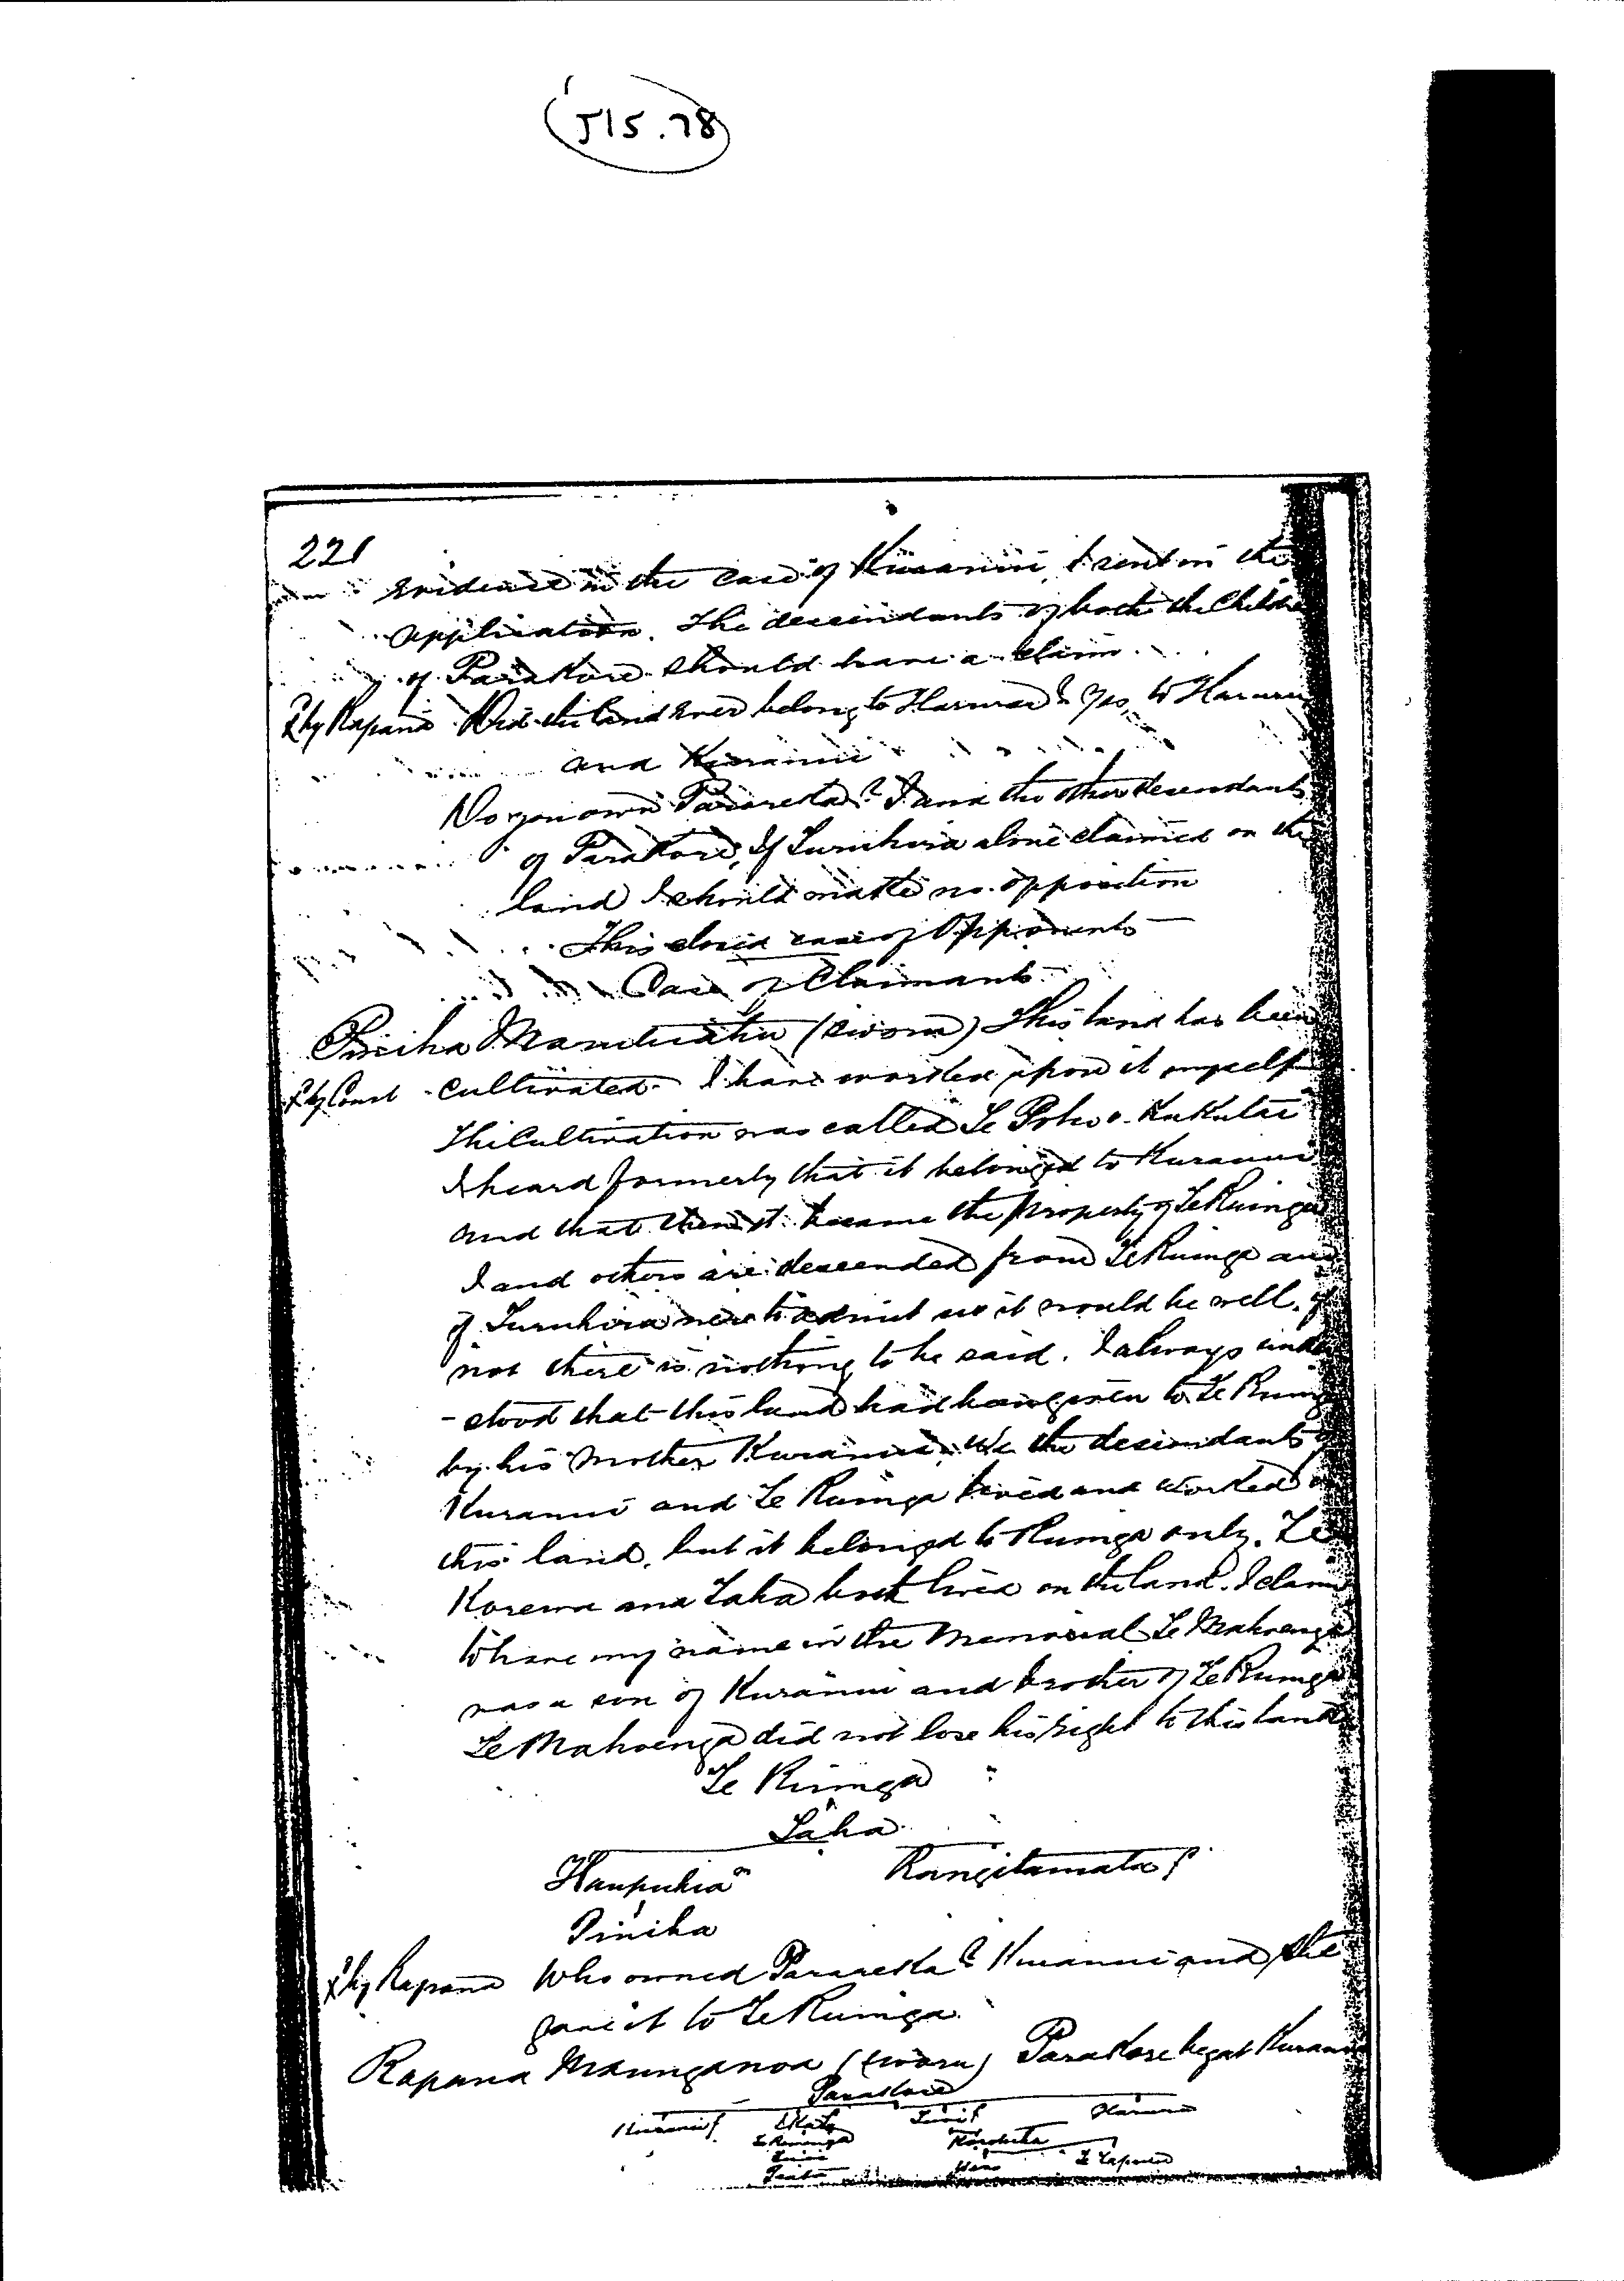 J15.78
221
evidence in the case of Kuranui, I sent in the
application. The descendants of both the Children
of Parakore should have a claim.
X by Rapana Did the land ever belong to Haruru? Yes, to Haruru
and Kuranui
Do you own Parareka? I and the other descendants
of Parakore, If Turuhira alone claimed on the
land I should make no opposition
This closed case of Opponents
Case of Claimants
Piniha (sworn) This land has been
X by Court cultivated. I have worked upon it myself
The Cultivation was called Te Poho o Kukutai
I heard formerly that it belonged to Kuranui
and that then it became the property of Te Ruinga
I and others are descended from Te Ruinga and
if Turuhira were to admit us it would be well, if
not there is nothing to be said. I always under
-stood that this land had been given to Te Ruinga
by his mother Kuranui. We the descendants of
Kuranui and Te Ruinga lived and worked on
this land, but it belonged to Ruinga only. Te
Korewa and Taha both lived on the land. I claim
to have my name in the Memorial Te Mahoenga
was a son of Kuranui and brother of Te Ruinga
Te Mahoenga did not lose his right to this land
Te Ruinga
Taha
Haupukia m Rangitamata f
Piniha
X by Rapana Who owned Parareka? Kuranui and she
gave it to Te Ruinga
Rapana Maunganoa (sworn) Parakore begat Kuranui
Parakore
Kuranui f